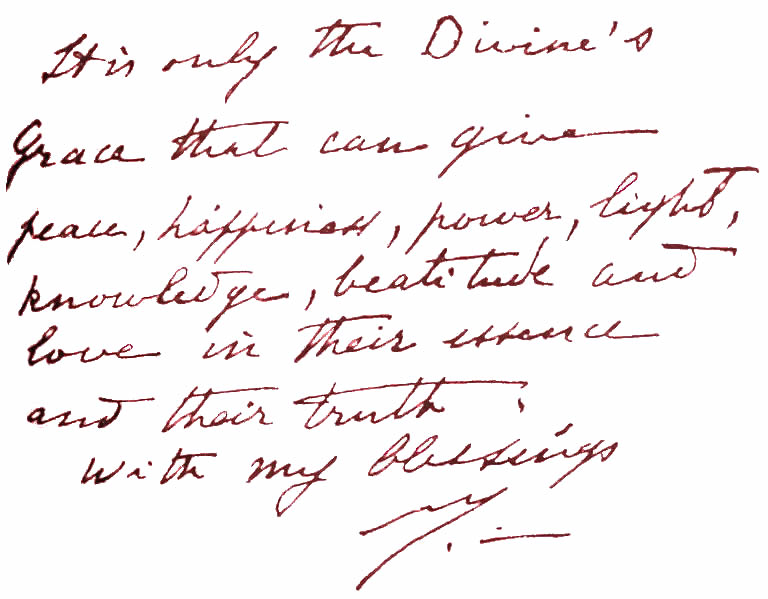 It is only the Divine's
Grace that can give
peace, happiness, power, light,
knowledge, beatitude and
love in their essence
and their truth.
With my blessings